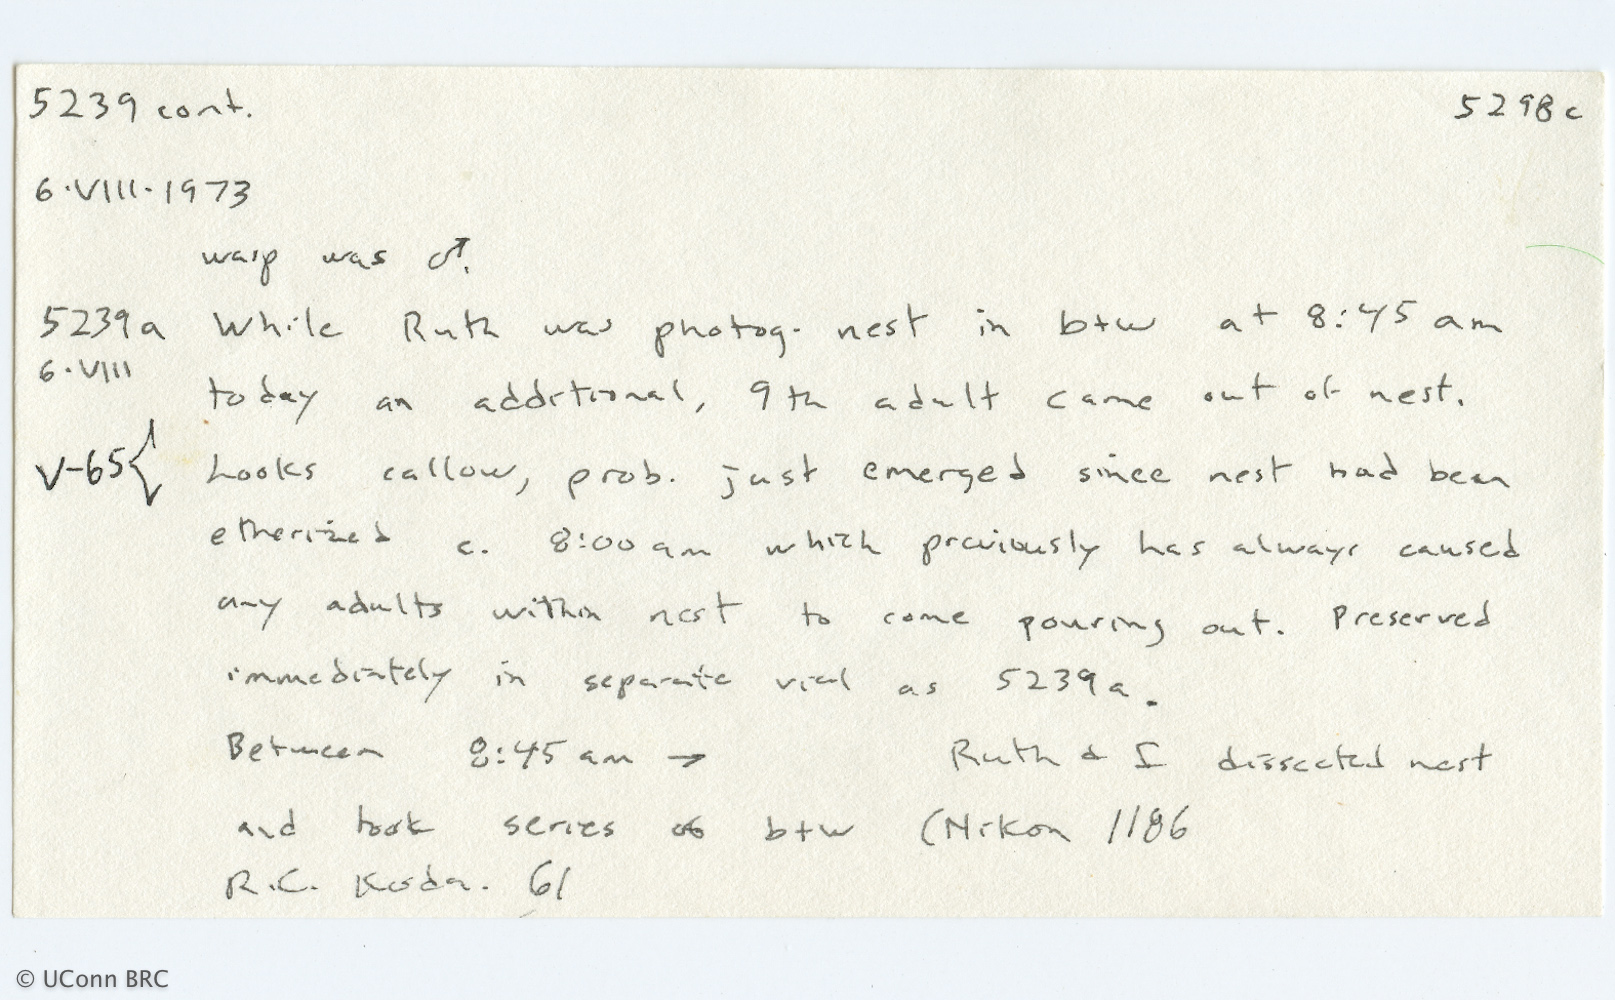 5239 cont. 5298c
6·VIII·1973
wasp was ♂.
5239a While Ruth was photog. nest in b+w at 8:45 am
6·VIII
today an additional, 9th adult came out of nest.
V-65{ Looks callow, prob. just emerged since nest had been
etherized c. 8:00 am which previously has always caused
any adults within nest to come pouring out. Preserved
immediately in separate vial as 5239a.
Between 8:45 am → Ruth & I dissected nest
and took series of b+w (Nikon 1186
R.C. Koda. 61
© UConn BRC